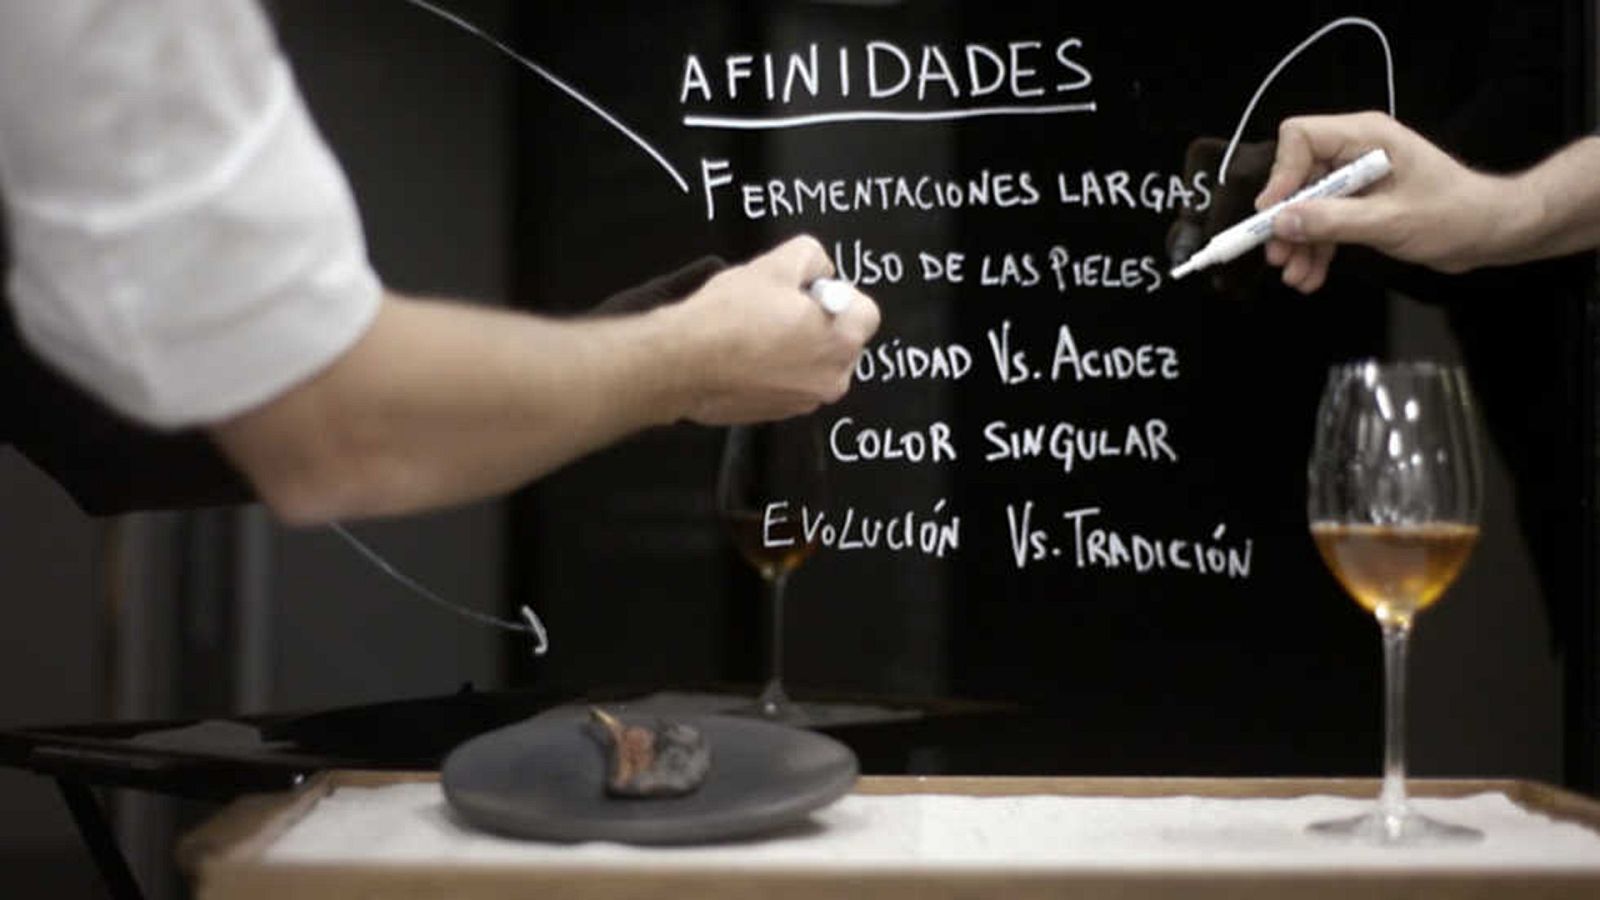 AFINIDADES
FERMENTACIONES LARGAS
USO DE LAS PIELES
VS. ACIDEZ
COLOR SINGULAR
EVOLUCIÓN VS. TRADICIÓN